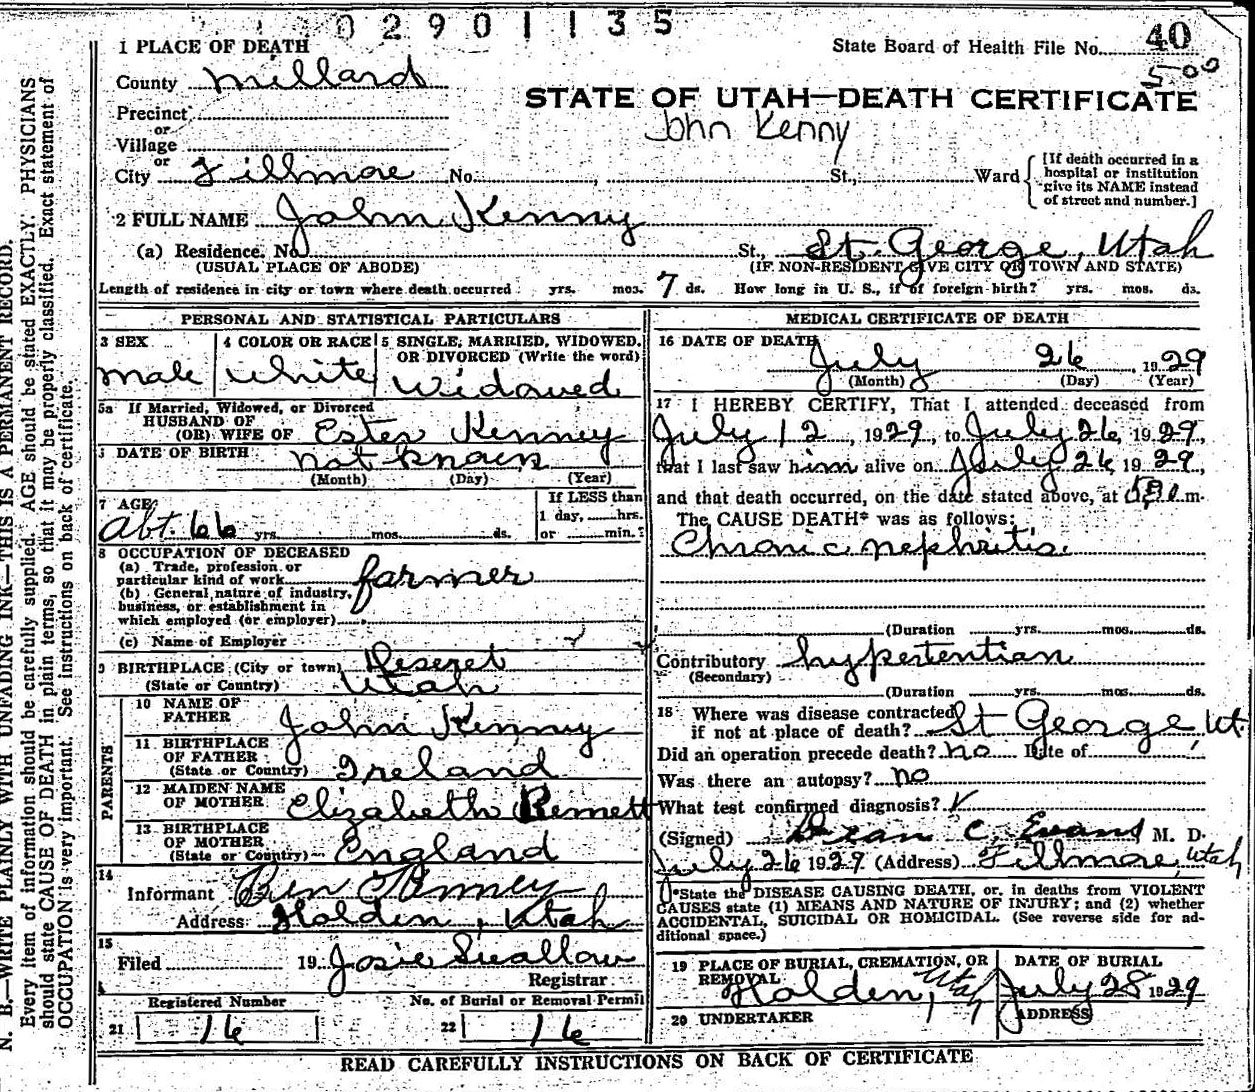 02901135
1 PLACE OF DEATH
State Board of Health File No. 40
County Millard
500
STATE OF UTAH—DEATH CERTIFICATE
Precinct
John Kenny
or
Village
or
City Fillmore No. , St., Ward
[If death occurred in a
hospital or institution
give its NAME instead
of street and number.]
2 FULL NAME John Kenny
(a) Residence. No. St., St. George, Utah
(USUAL PLACE OF ABODE) (IF NON-RESIDENT GIVE CITY OR TOWN AND STATE)
Length of residence in city or town where death occurred yrs. mos. 7 ds. How long in U. S., if of foreign birth? yrs. mos. ds.
PERSONAL AND STATISTICAL PARTICULARS
3 SEX 4 COLOR OR RACE 5 SINGLE, MARRIED, WIDOWED,
OR DIVORCED (Write the word)
male white Widowed
5a If Married, Widowed, or Divorced
HUSBAND OF
(OR) WIFE OF Ester Kenney
DATE OF BIRTH not known
(Month) (Day) (Year)
7 AGE If LESS than
1 day, hrs.
Abt. 66 yrs. mos. ds. or min.?
8 OCCUPATION OF DECEASED
(a) Trade, profession or
particular kind of work farmer
(b) General nature of industry,
business, or establishment in
which employed (or employer)
(c) Name of Employer
9 BIRTHPLACE (City or town) Deseret
(State or Country) Utah
PARENTS
10 NAME OF
FATHER John Kenny
11 BIRTHPLACE
OF FATHER
(State or Country) Ireland
12 MAIDEN NAME
OF MOTHER Elizabeth Bennett
13 BIRTHPLACE
OF MOTHER
(State or Country) England
14
Informant Ben Kenney
Address Holden, Utah
15
Filed 19 Josie Swallow
Registrar
Registered Number No. of Burial or Removal Permit
21 16 22 16
MEDICAL CERTIFICATE OF DEATH
16 DATE OF DEATH
July 26, 1929
(Month) (Day) (Year)
17 I HEREBY CERTIFY, That I attended deceased from
July 12, 1929, to July 26, 1929,
that I last saw him alive on July 26, 1929,
and that death occurred, on the date stated above, at m.
The CAUSE DEATH* was as follows:
Chronic nephritis.
(Duration yrs. mos. ds.
Contributory hypertention
(Secondary)
(Duration yrs. mos. ds.
18 Where was disease contracted
if not at place of death? St George, Ut.
Did an operation precede death? no Date of
Was there an autopsy? no
What test confirmed diagnosis? ✓
(Signed) Dean C. Evans M. D.
July 26 1929 (Address) Fillmore, Utah
*State the DISEASE CAUSING DEATH, or, in deaths from VIOLENT
CAUSES state (1) MEANS AND NATURE OF INJURY; and (2) whether
ACCIDENTAL, SUICIDAL OR HOMICIDAL. (See reverse side for ad-
ditional space.)
19 PLACE OF BURIAL, CREMATION, OR
REMOVAL
Holden, Utah
DATE OF BURIAL
July 28 1929
20 UNDERTAKER ADDRESS
READ CAREFULLY INSTRUCTIONS ON BACK OF CERTIFICATE
N. B.—WRITE PLAINLY WITH UNFADING INK—THIS IS A PERMANENT RECORD.
Every item of information should be carefully supplied. AGE should be stated EXACTLY. PHYSICIANS
should state CAUSE OF DEATH in plain terms, so that it may be properly classified. Exact statement of
OCCUPATION is very important. See instructions on back of certificate.